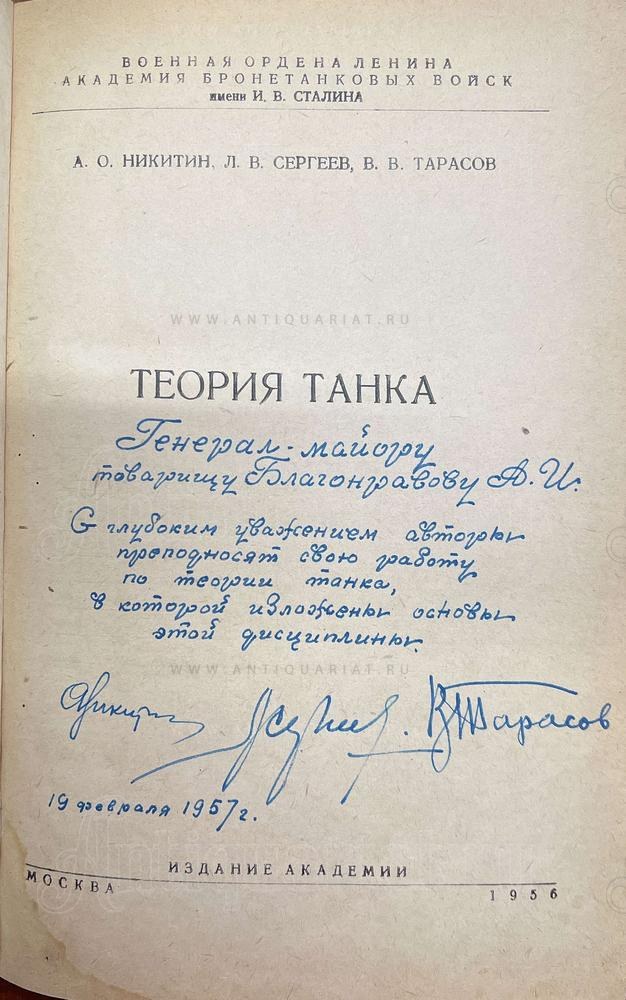 ВОЕННАЯ ОРДЕНА ЛЕНИНА
АКАДЕМИЯ БРОНЕТАНКОВЫХ ВОЙСК
имени И. В. СТАЛИНА
А. О. НИКИТИН, Л. В. СЕРГЕЕВ, В. В. ТАРАСОВ
WWW.ANTIQUARIAT.RU
ТЕОРИЯ ТАНКА
Генерал-майору
товарищу Благонравову А. И.
С глубоким уважением авторы
преподносят свою работу
по теории танка,
в которой изложены основы
этой дисциплины.
WWW.ANTIQUARIAT.RU
АНикитин ВТарасов
19 февраля 1957г.
ИЗДАНИЕ АКАДЕМИИ
МОСКВА 1956